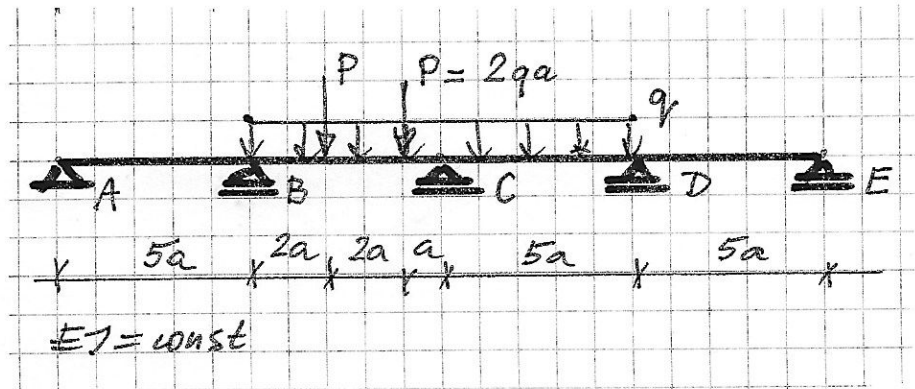 P P = 2qa
q
A B C D E
5a 2a 2a a 5a 5a
EJ = const